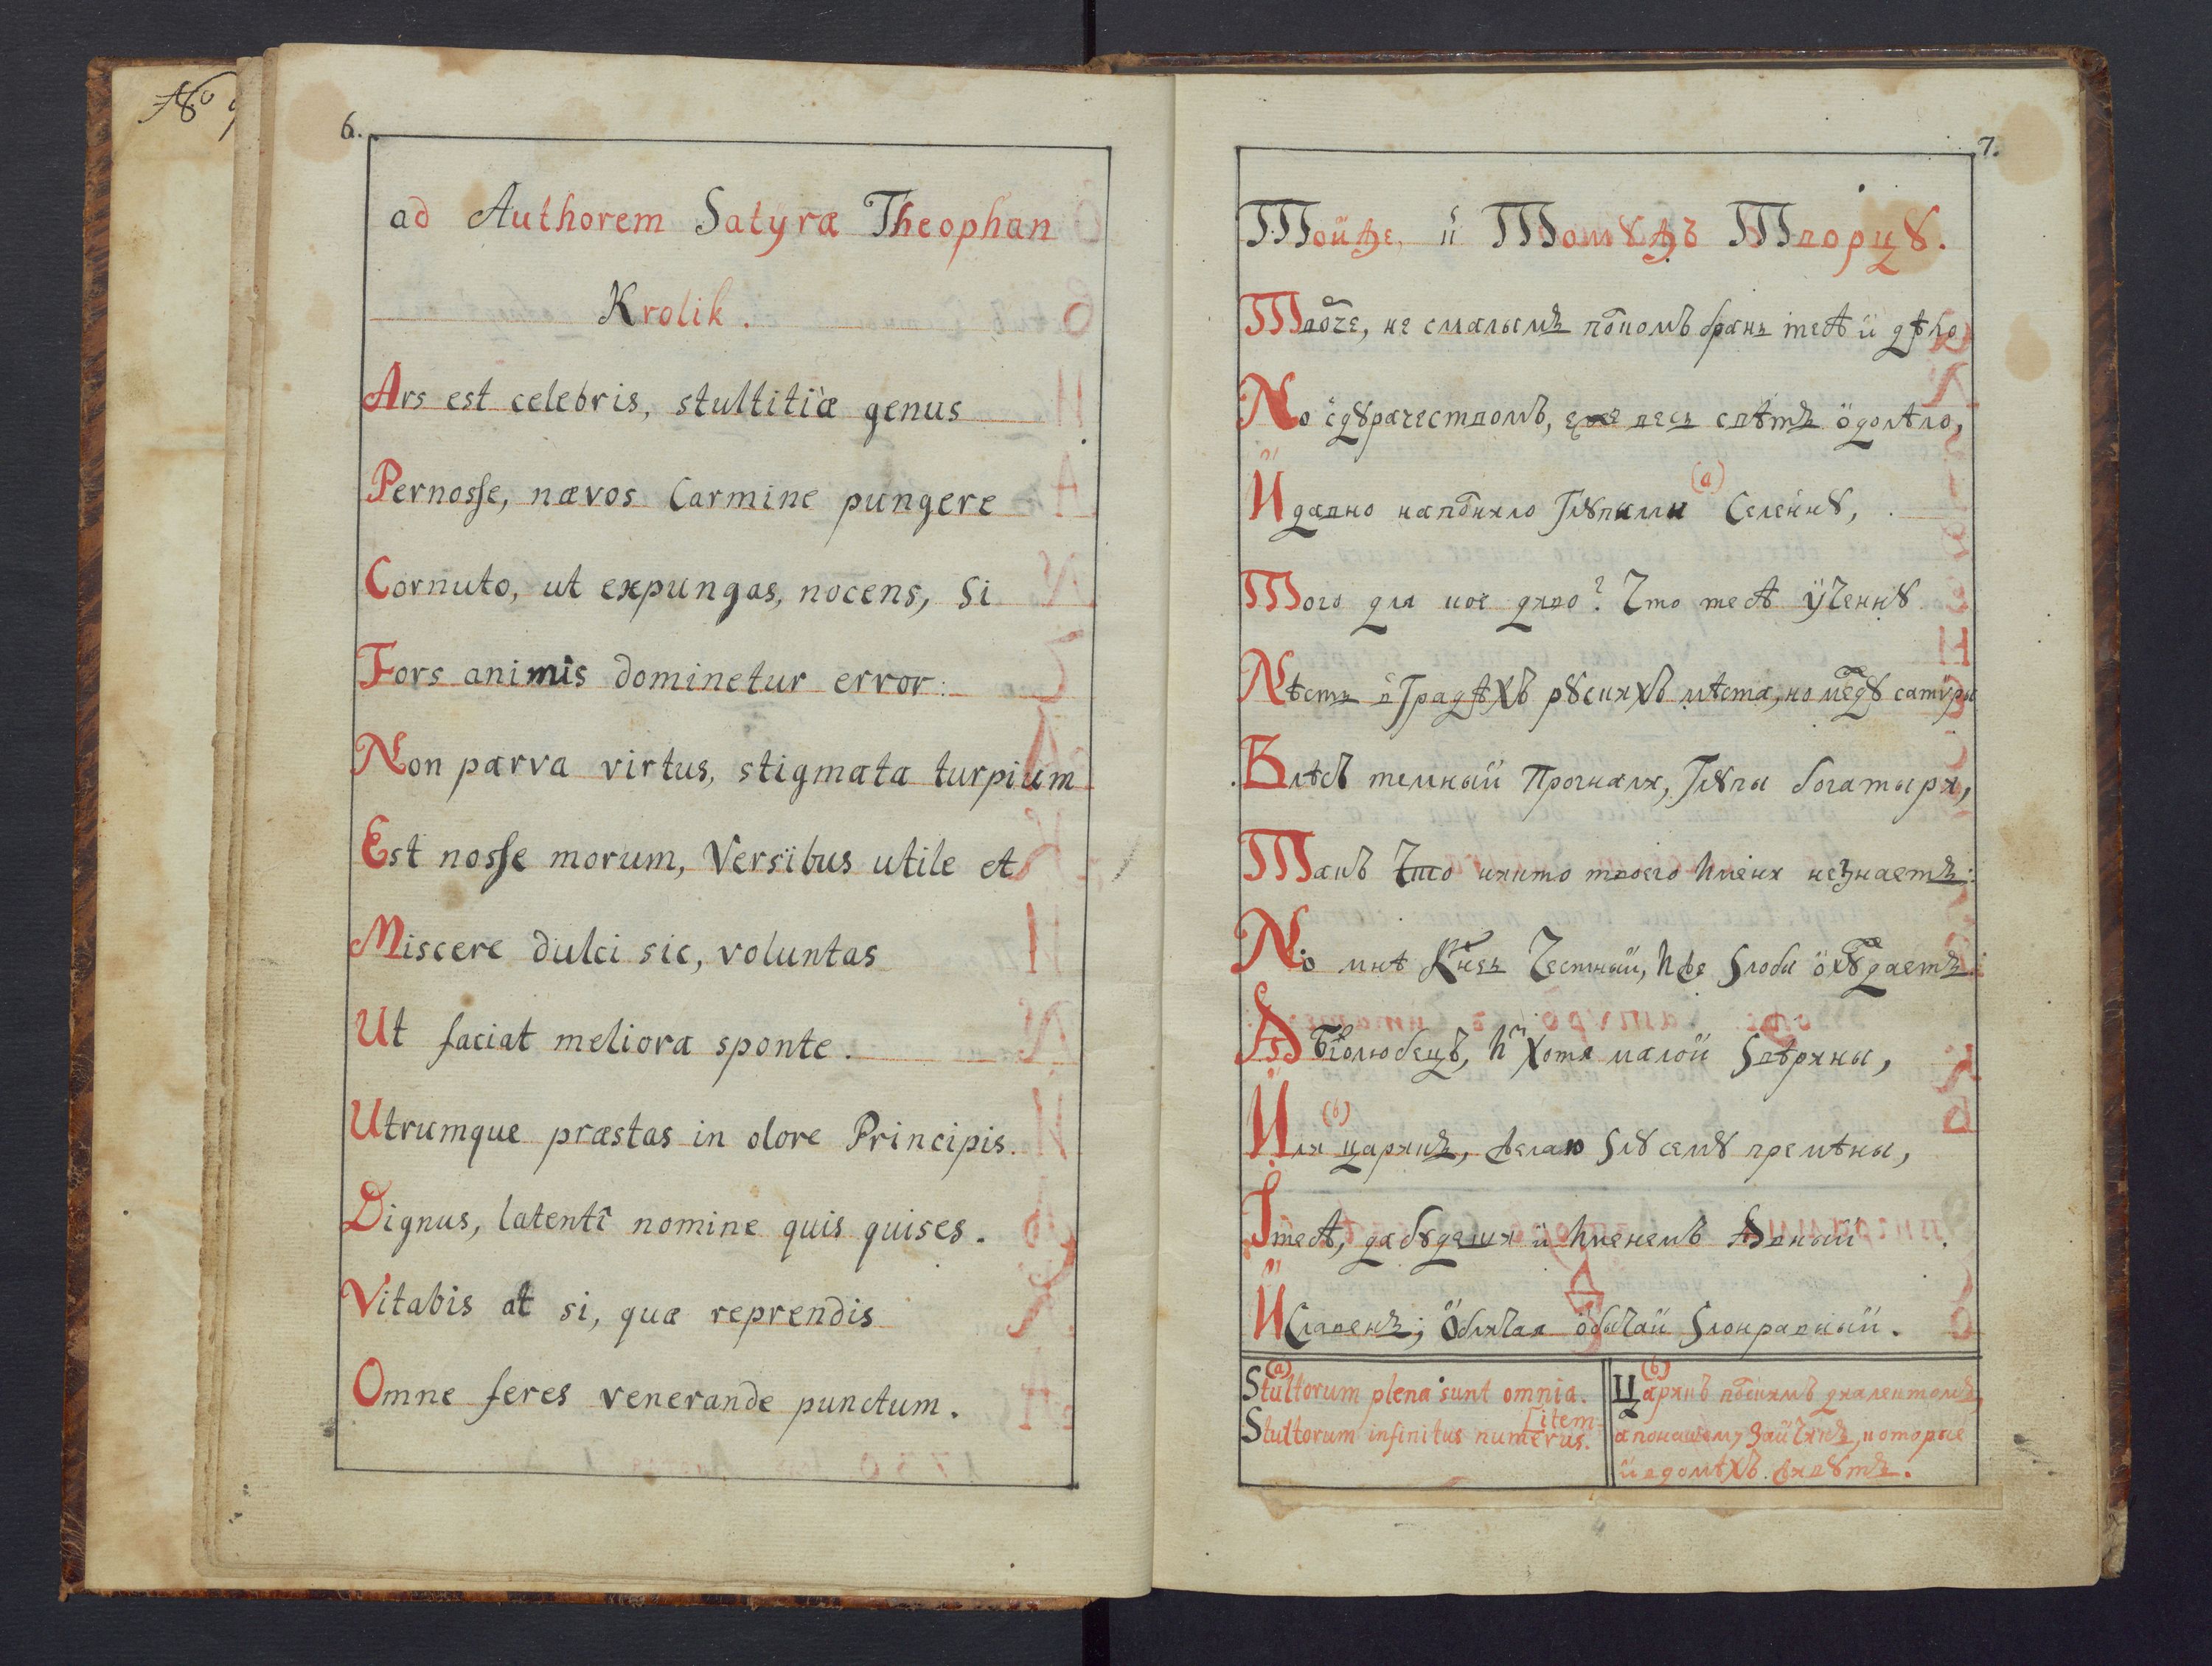 No
6.
ad Authorem Satyræ Theophan
Krolik.
Ars est celebris, stultitiæ genus
Pernosse, nævos Carmine pungere
Cornuto, ut expungas, nocens, si
Fors animis dominetur error:
Non parva virtus, stigmata turpium
Est nosse morum, Versibus utile et
Miscere dulci sic, voluntas
Ut faciat meliora sponte.
Utrumque præstas in olore Principis.
Dignus, latentî nomine quis quises.
Vitabis at si, quæ reprendis
Omne feres venerande punctum.
7.
Тойже, и Томꙋжъ Творцꙋ.
Твоче, не смалымъ покомъ брань тебѣ и дѣло
Но сдꙋрачествомъ, еже весь свѣтъ одолѣло,
И давно наполнило Глꙋпыми (a) Селеннꙋ,
Того для кое диво? Что тебѣ ученнꙋ
Нѣсть в Градѣхъ рꙋскихъ мѣста, но междꙋ сатѵры
Влѣсъ темный Прогнали, Глꙋпы богатыри,
Такъ Что никто твоего Имени незнаетъ:
Но мнѣ Князь Честный, Иже Злобы охꙋждаетъ
А Боголюбецъ, И Хотя малой Звѣрины,
Или (b) царикъ, желаю Злꙋ семꙋ премѣны,
І тебѣ, дабꙋдеши и Именемъ Явный
И Славенъ; Обличая обычай Злонравный.
(a)
Stultorum plena sunt omnia.
[item
Stultorum infinitus numerus.
(b)
Царикъ польскимъ диалектомъ,
а понашему Зайчикъ, которые
и вдомѣхъ живꙋтъ.